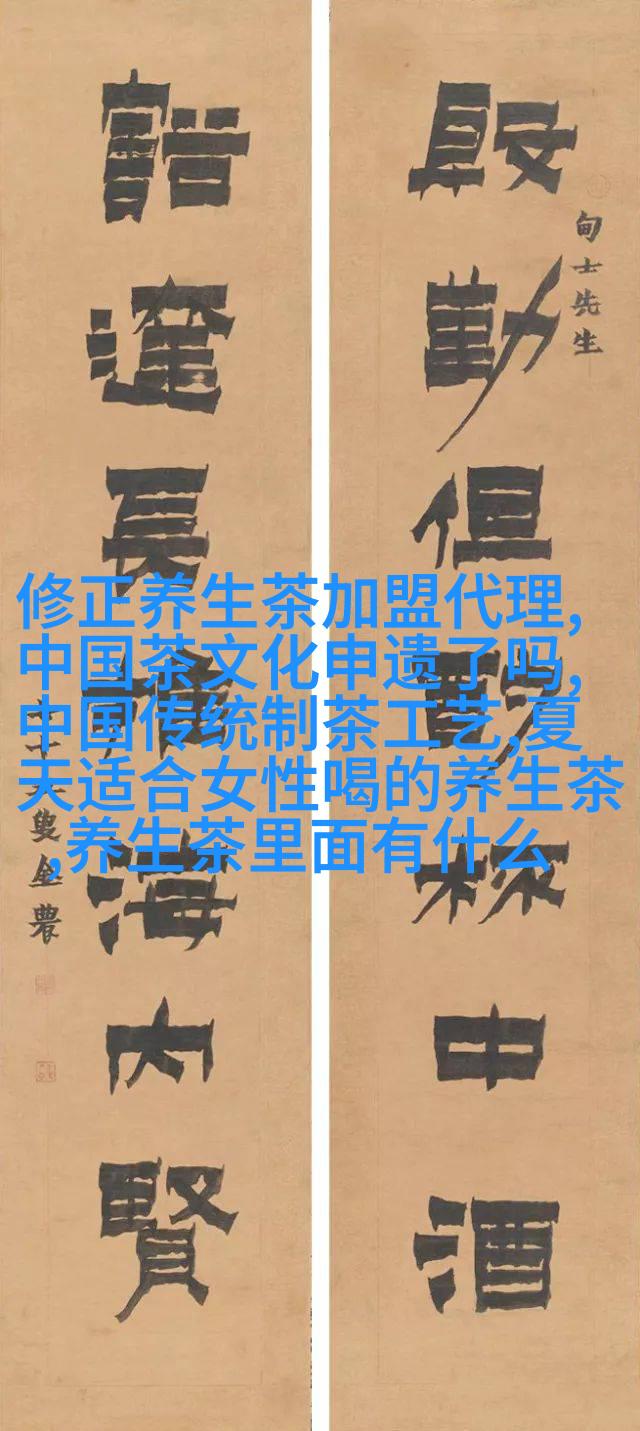 甸士先生
殷勤但酌杯中酒
豁達長海內賢
叟金農
修正养生茶加盟代理,
中国茶文化申遗了吗,
中国传统制茶工艺,夏
天适合女性喝的养生茶
,养生茶里面有什么